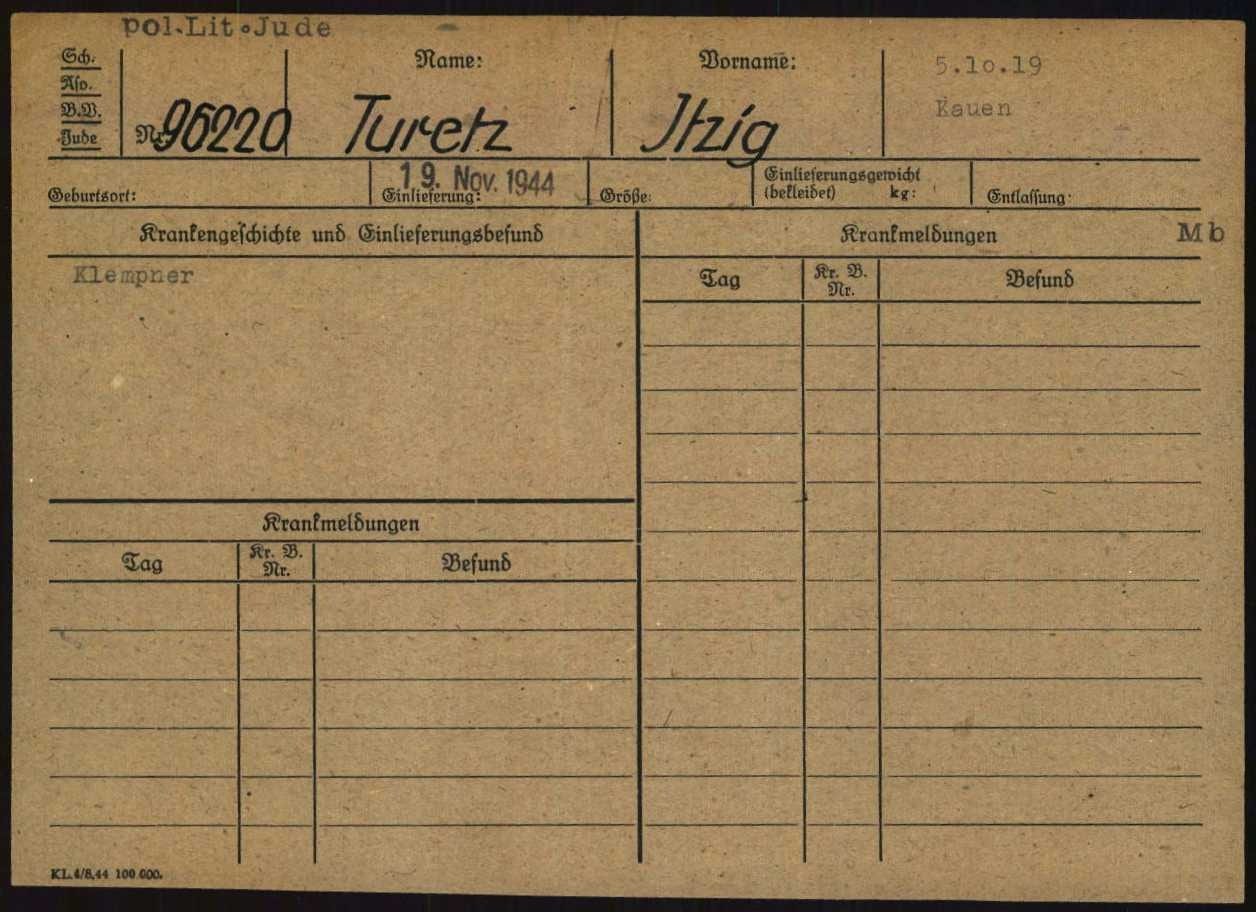 pol.Lit.Jude
Sch.
Aso.
B.V.
Jude
Nr. 96220
Name:
Turetz
Vorname:
Itzig
5.10.19
Kauen
Geburtsort:
19. Nov. 1944
Einlieferung:
Größe:
Einlieferungsgewicht
(bekleidet) kg:
Entlassung:
Krankengeschichte und Einlieferungsbefund
Klempner
Krankmeldungen
Tag
Kr. B.
Nr.
Befund
Krankmeldungen
Mb
Tag
Kr. B.
Nr.
Befund
KL.4/8.44 100 000.